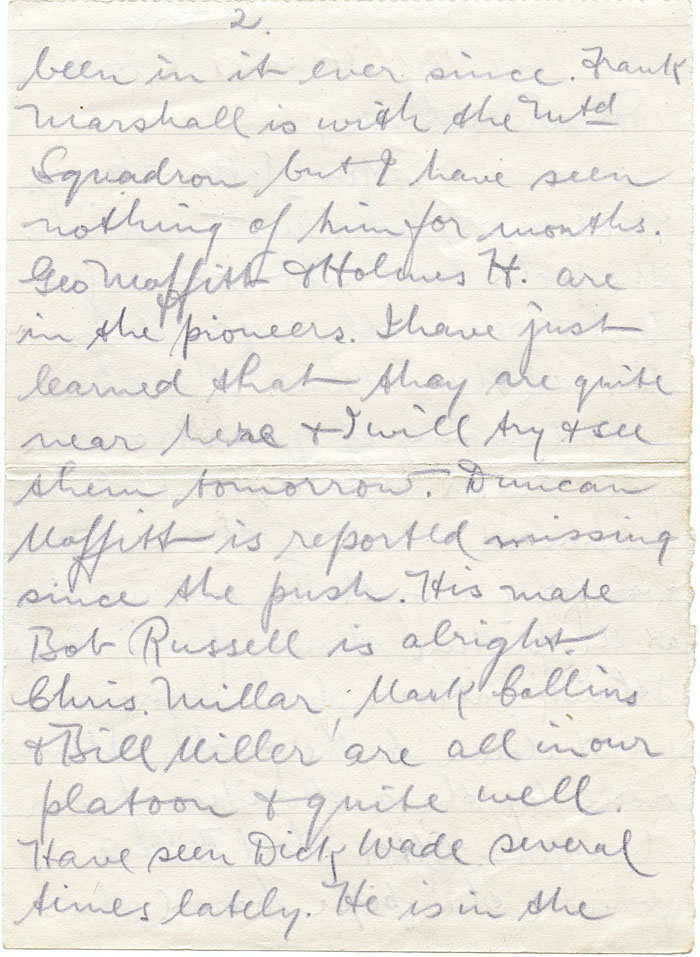 2.
been in it ever since. Frank
Marshall is with the Mtd
Squadron but I have seen
nothing of him for months.
Geo Moffitt & Holmes H. are
in the pioneers. I have just
learned that thay are quite
near here & I will try & see
them tomorrow. Duncan
Moffitt is reported missing
since the push. His mate
Bob Russell is alright.
Chris. Millar, Mark Collins
& Bill Miller are all in our
platoon & quite well.
Have seen Dick Wade several
times lately. He is in the